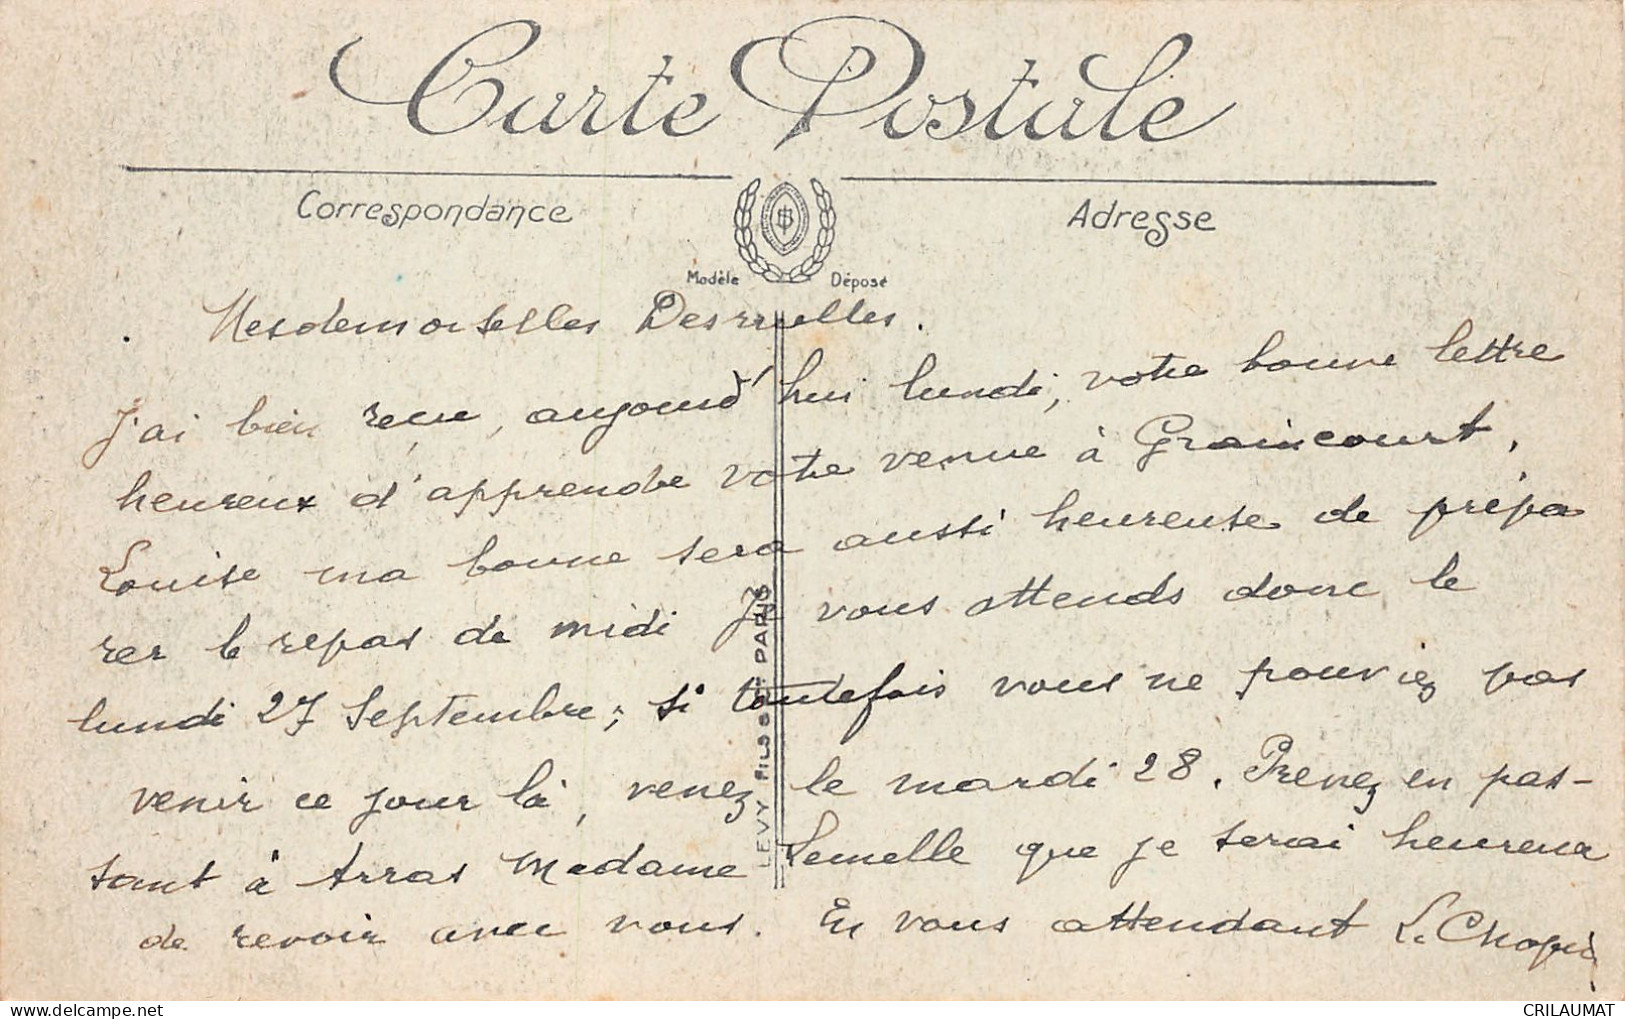 Carte Postale
Correspondance
Adresse
Modèle Déposé
Mesdemoiselles Desruelles.
J'ai bien reçu, aujourd'hui lundi, votre bonne lettre
heureux d'apprendre votre venue à Graincourt.
Louise ma bonne sera aussi heureuse de prépa
rer le repas de midi Je vous attends donc le
lundi 27 Septembre; si toutefois vous ne pouviez pas
venir ce jour là, venez le mardi 28. Prenez en pas-
sant à Arras Madame Semelle que je serai heureux
de revoir avec vous. En vous attendant L. Chopin
LEVY FILS ET Cie PARIS
CRILAUMAT